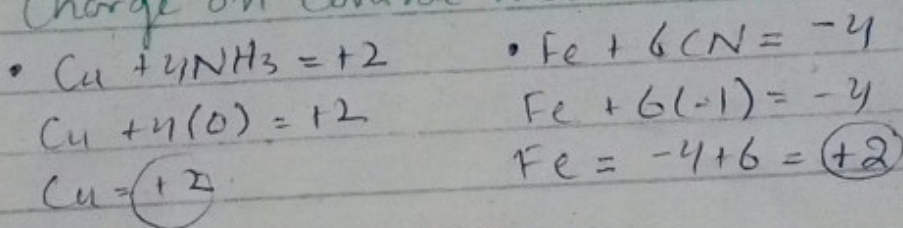 Charge on
• Cu + 4NH3 = +2
Cu + 4(0) = +2
Cu = +2
• Fe + 6CN = -4
Fe + 6(-1) = -4
Fe = -4+6 = +2